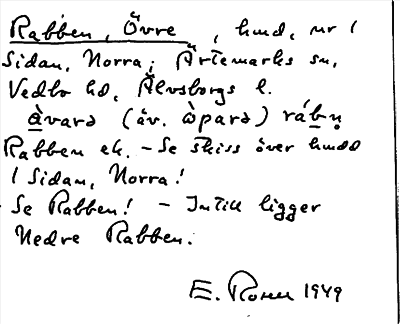 Rabben, Övre, hmd, nr 1
Sidan, Norra; Ärtemarks sn,
Vedbo hd, Älvsborgs l.
à̱varə (äv. ò̱parə) ráḇn̥
Rabben ek. - Se skiss över hmdd
1 Sidan, Norra!
- Se Rabben! - Intill ligger
Nedre Rabben.
E. Rosell 1949